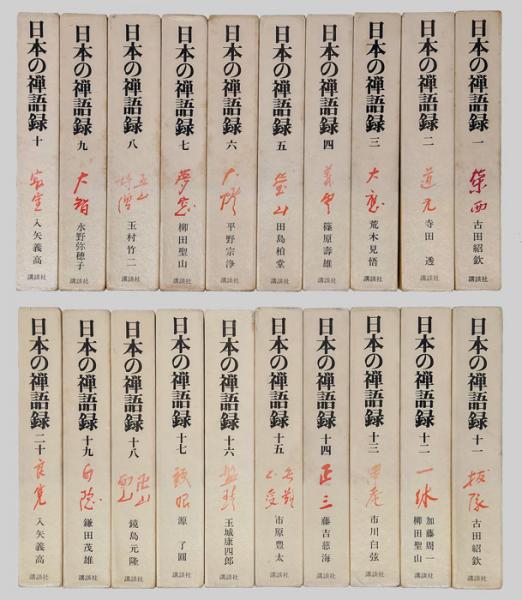 日本の禅語録 一 榮西 古田紹欽 講談社
日本の禅語録 二 道元 寺田 透 講談社
日本の禅語録 三 大應 荒木見悟 講談社
日本の禅語録 四 義雲 篠原壽雄 講談社
日本の禅語録 五 瑩山 田島柏堂 講談社
日本の禅語録 六 大燈 平野宗浄 講談社
日本の禅語録 七 夢窓 柳田聖山 講談社
日本の禅語録 八 五山詩僧 玉村竹二 講談社
日本の禅語録 九 大智 水野弥穂子 講談社
日本の禅語録 十 寂室 入矢義高 講談社
日本の禅語録 十一 抜隊 古田紹欽 講談社
日本の禅語録 十二 一休 加藤周一 柳田聖山 講談社
日本の禅語録 十三 沢庵 市川白弦 講談社
日本の禅語録 十四 正三 藤吉慈海 講談社
日本の禅語録 十五 無難 正受 市原豊太 講談社
日本の禅語録 十六 盤珪 玉城康四郎 講談社
日本の禅語録 十七 鉄眼 源 了圓 講談社
日本の禅語録 十八 卍山 面山 鏡島元隆 講談社
日本の禅語録 十九 白隠 鎌田茂雄 講談社
日本の禅語録 二十 良寛 入矢義高 講談社